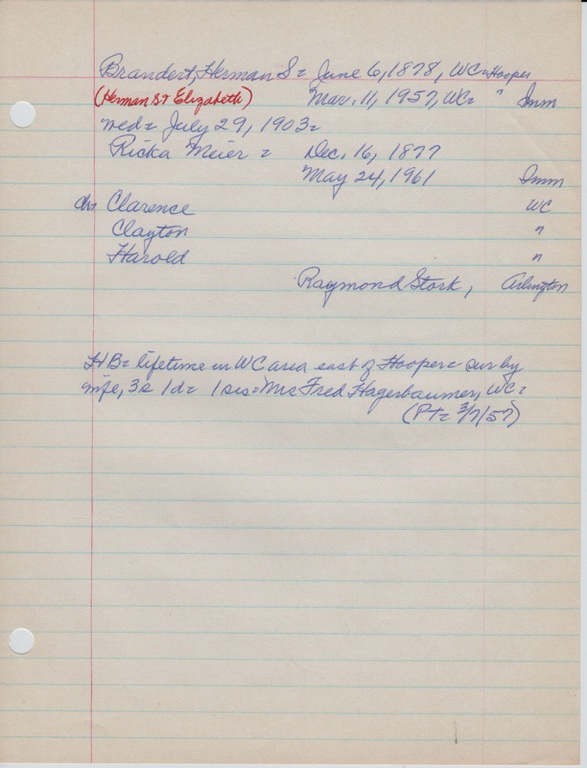 Brandert, Herman S= June 6, 1878, WC=Hooper
(Herman Sr Elizabeth) Mar. 11, 1957, WC= " Imm
med= July 29, 1903=
Ricka Meier = Dec. 16, 1877
May 24, 1961 Imm
ch. Clarence WC
Clayton "
Harold "
Raymond Stork, Arlington
HB= lifetime in WC area east of Hooper= sur by
wife, 3s 1d= 1 sis=Mrs Fred Hagerbaumer, WC=
(PT= 3/7/57)